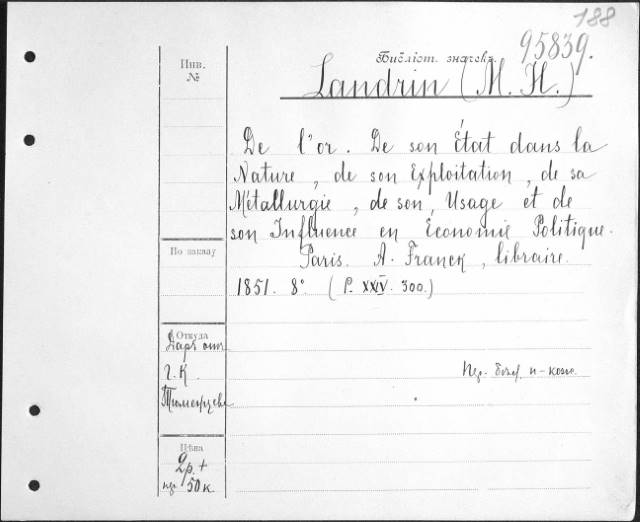 188
95839.
Библіот. значекъ.
Инв.
№
Landrin (M. H.)
De l'or. De son État dans la
Nature, de son Exploitation, de sa
Métallurgie, de son, Usage et de
son Influence en Economie Politique.
Paris. A. Franck, libraire.
1851. 8° (P. XXIV. 300.)
По заказу
Откуда
Даръ отъ
г. К.
Цѣна
2р. +
50 к.